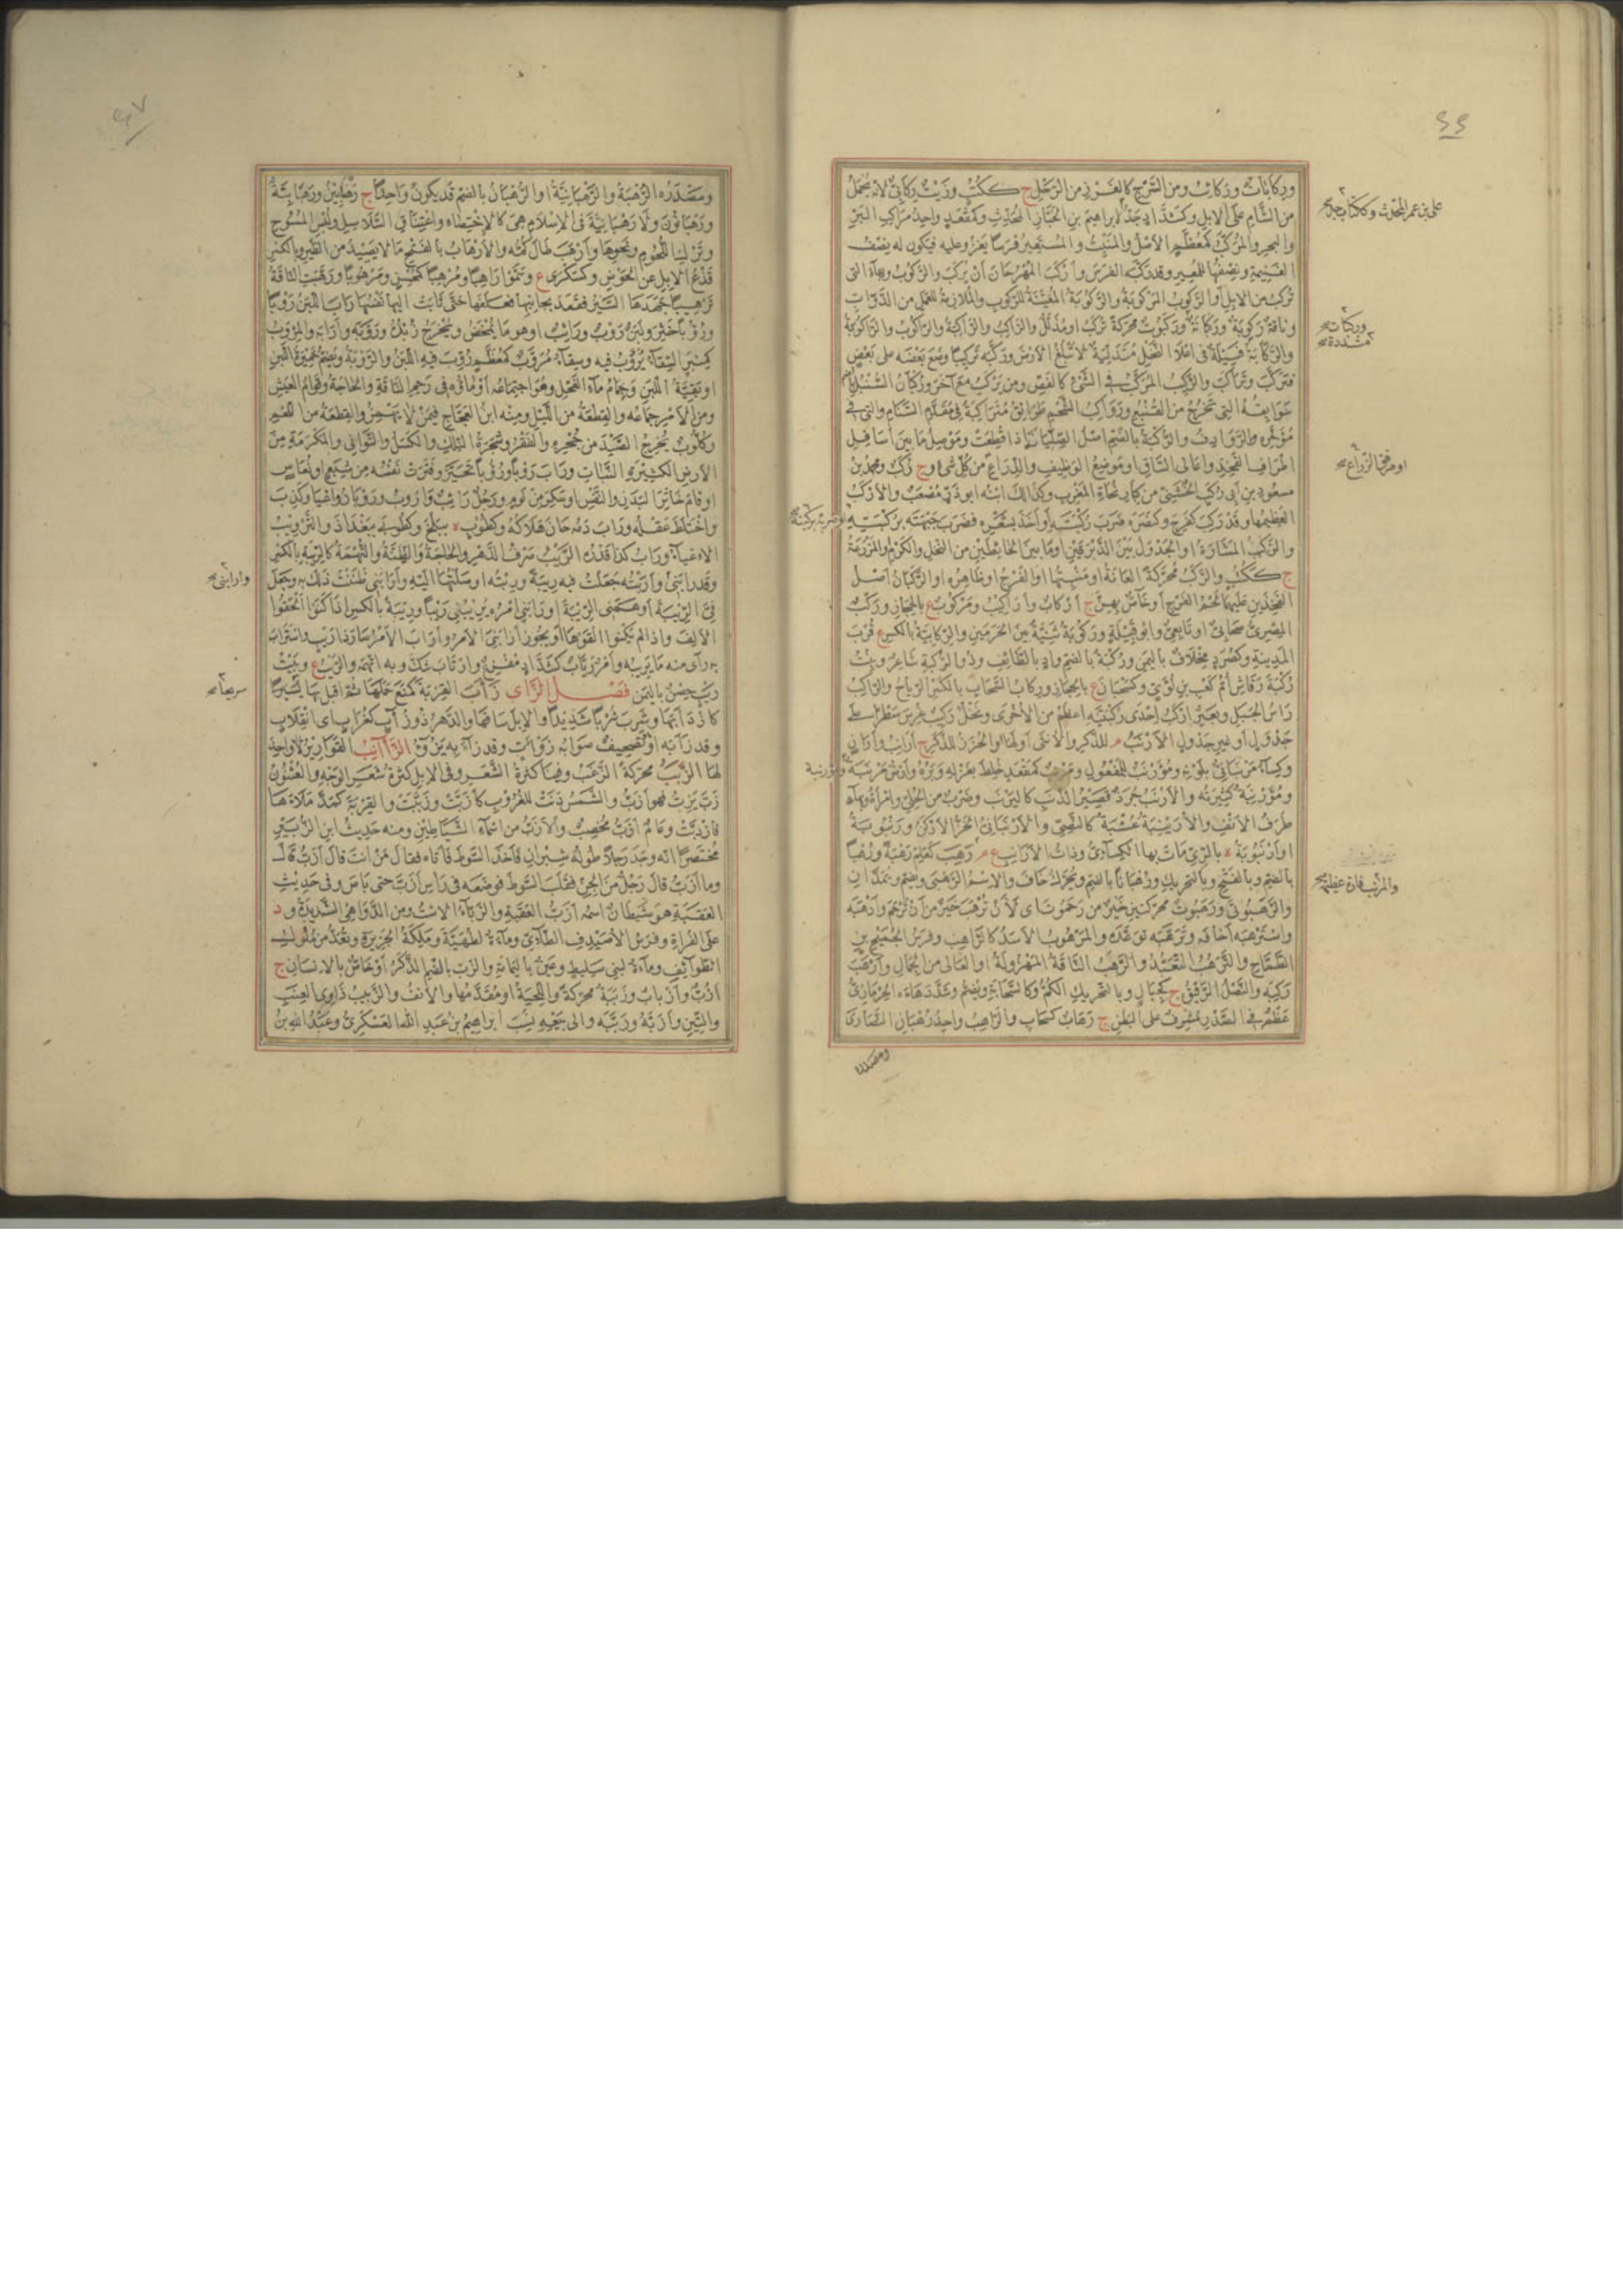 وركابات وركائب ومن السرج كالغرز من الرحل ج ككتب وزيت ركابي لانه يحمل
من الشام على الابل وكشداد جد لابراهيم بن الخباز المحدث وكمقعد واحد مراكب البر
والبحر والمركب كمعظم الاصل والمنبت والمستعير فرسا يغزو عليه فيكون له نصف
الغنيمة ونصفها للمعير وقد ركبه الفرس واركب المهر حان ان يركب والركوب وبهاء التى
تركب من الابل او الركوب المركوبة والركوبة المعينة للركوب واللازمة للعمل من الدواب
وناقة ركوبة وركبانة وركبوت محركة تركب او مذلل والراكب والراكبة والراكوب والراكوبة
والركابة فسيلة فى اعلا النخل متدلية لا تبلغ الارض وركبه تركيبا وضع بعضه على بعض
فتركب وتراكب والركيب المركب فى الشئ كالفص ومن يركب مع آخر وركبان السنبل بالضم
سوابقه التى تخرج من القنبع ورواكب الشحم طرائق متراكبة فى مقدم السنام والتى فى
مؤخره الروادف والركبة بالضم اصل الصليانة اذا قطعت وموصل ما بين اسافل
اطراف الفخذ واعالى الساق او موضع الوظيف والذراع من كل شئ ج ركب ومحمد بن
مسعود بن ابى ركب الخشنى من كبار نحاة المغرب وكذلك ابنه ابو ذر مصعب والاركب
العظيمها وقد ركب كفرح وكنصره ضرب ركبته او اخذ بشعره فضرب جبهته بركبته
والركيب المشارة او الجدول بين الدبرتين او ما بين الحائطين من النخل والكرم او المزرعة
ج ككتب والركب محركة العانة او منبتها او الفرج او ظاهره او الركبان اصل
الفخذين عليهما لحم الفرج او خاص بهن ج اركاب واراكيب ومركوب ع بالحجاز وركب
المصرى صحابى او تابعى وابو قبيلة وركوبة ثنية بين الحرمين والركابية بالكسر ع قرب
المدينة وكصرد مخلاف باليمن وركبة بالضم واد بالطائف وذو الركبة شاعر وبنت
ركبة رقاش ام كعب بن لؤى وكسحبان ع بالحجاز وركاب السحاب بالكسر الرياح والراكب
راس الجبل وبعير اركب احدى ركبتيه اعظم من الاخرى ونخل ركيب غرس سطرا على
جدول او غير جدول الارنب م للذكر والانثى او لها والخزز للذكر ج ارانب واران
وكساء مرنبانى بلونه ومؤرنب للمفعول ومرنب كمقعد خلط بغزله وبره وارض مرنبة
ومؤرنبة كثيرته والارنب جرذ قصير الذنب كاليرنب وضرب من الحلى وامراة وبهاء
طرف الانف والارينبة عشبة كالنصى والارنبانى الخز الادكن ورنبوية
او ارنبوية ة بالرى مات بها الكسائى وذات الارانب ع م رهب كعلم رهبة ورهبا
بالضم وبالفتح وبالتحريك ورهبانا بالضم ويحرك خاف والاسم الرهبى ويضم ويمدان
والرهبوتى ورهبوت محركتين خير من رحموت اى لان ترهب خير من ان ترحم وارهبه
واسترهبه اخافه وترهبه توعده والمرهوب الاسد كالراهب وفرس الجميح بن
الطماح والترهب التعبد والرهب الناقة المهزولة او العالى من الجمال وارهب
ركبه والنصل الرقيق ج كجبال وبالتحريك الكم وكالسحابة ويضم وشدد هاءه الحرمازى
عظم فى الصدر مشرف على البطن ج رهاب كسحاب والراهب واحد رهبان النصارى
ومصدره
على بن عمر المحدث وككتاب جد
وركبات مشددة
او مرفق الذراع
او ضربه بركبته
ومؤرنبة
والمرنب فارة عظيمة
٤٦
ومصدره الرهبة والرهبانية او الرهبان بالضم قد يكون واحدا ج رهابين ورهابنة
ورهبانون ولا رهبانية فى الاسلام هى كالاختصاء واعتناق السلاسل ولبس المسوح
وترك اللحوم ونحوها وارهب طال كمه والارهاب بالفتح ما لا يصيد من الطير وبالكسر
قدع الابل عن الحوض وكسكرى ع وسموا راهبا ومرهبا كمحسن ومرهوبا ورهبت الناقة
ترهيبا جهدها السير فقعد يحاييها فعلفها حتى ثابت اليها نفسها راب اللبن روبا
ورؤبا خثر ولبن روب ورائب او هو ما يمخض ويخرج زبده وروبه وارابه والمروب
كمنبر السقاء يروب فيه وسقاء مروب كمعظم روب فيه اللبن والروبة ويضم خميرة اللبن
او بقية اللبن وجمام ماء الفحل وهو اجتماعه او ماؤه فى رحم الناقة والحاجة وقوام العيش
ومن الامر جماعه والقطعة من الليل ومنه ابن العجاج فيمن لا يهمز والقطعة من اللحم
وكلوب يخرج الصيد من جحره والفقر وشجرة النلك والكسل والتوانى والمكرمة من
الارض الكثيرة النبات وراب روبا ورؤبا تحير وفترت نفسه من شبع او نعاس
او قام خاثر البدن والنفس او سكر من نوم ورجل رائب واروب وروبان واعيا وكذب
واختلط عقله وراب دمه حان هلاكه وكطوب ة ببلخ وكطوبى ة ببغداذ والترويب
الاعياء وراب كذا قدره الريب صرف الدهر والحاجة والظنة والتهمة كالريبة بالكسر
وقد رابنى وارابته جعلت فيه ريبة وربته اوصلتها اليه وارابنى ظننت ذلك به وجعل
فى الريبة او اوهمنى الريبة او رابنى امره يريبنى ريبا وريبة بالكسر اذا كنوا الحقوا
الالف واذا لم يكنوا القوها او يجوز ارابنى الامر واراب الامر صار ذا ريب واستراب
به راى منه ما يريبه وامر رياب كشداد مفزع وارتاب شك وبه اتهمه والريب ع وبيت
ريب حصن باليمن فصل الزاى زاب القربة كمنع حملها ثم اقبل بها
كازدابها وشرب شربا شديدا والابل ساقها والدهر ذو زؤاب كغراب اى انقلاب
وقد زاب به او تصحيف صوابه زوات وقد زاء به يزوء الزاانب القوارير لا واحد
لها الزبب محركة الزغب وفينا كثرة الشعر وفى الابل كثرة شعر الوجه والعثنون
زب يزب فهو ازب والشمس دنت للغروب كازبت وزببت والقربة كمد ملاها
فازدبت وعام ازب مخصب والازب من اسماء الشياطين ومنه حديث ابن الزبير
مختصرا انه وجد رجلا طوله شبران فاخذ السوط فاتاه فقال من انت قال ازب قال
وما ازب قال رجل من الجن فقلب السوط فوضعه فى راس ازب حتى باص وفى حديث
العقبة هو شيطان اسمه ازب العقبة والزباء الاست ومن الدواهى الشديدة ود
على الفرات وفرس الاصيدف الطائى وماءة لطهية وملكة الجزيرة وتعد من ملوك
الطوائف وماءة لبنى سليط وعين باليمامة والزب بالضم الذكر او خاص بالانسان ج
ازب وازباب وزببة محركة واللحية او مقدمها والانف والزبيب ذاوى العنب
والتين وازبه وزببه والى بيعه نسب ابراهيم بن عبد الله العسكرى وعبد الله بن
وارابنى
سريعا
٤٧